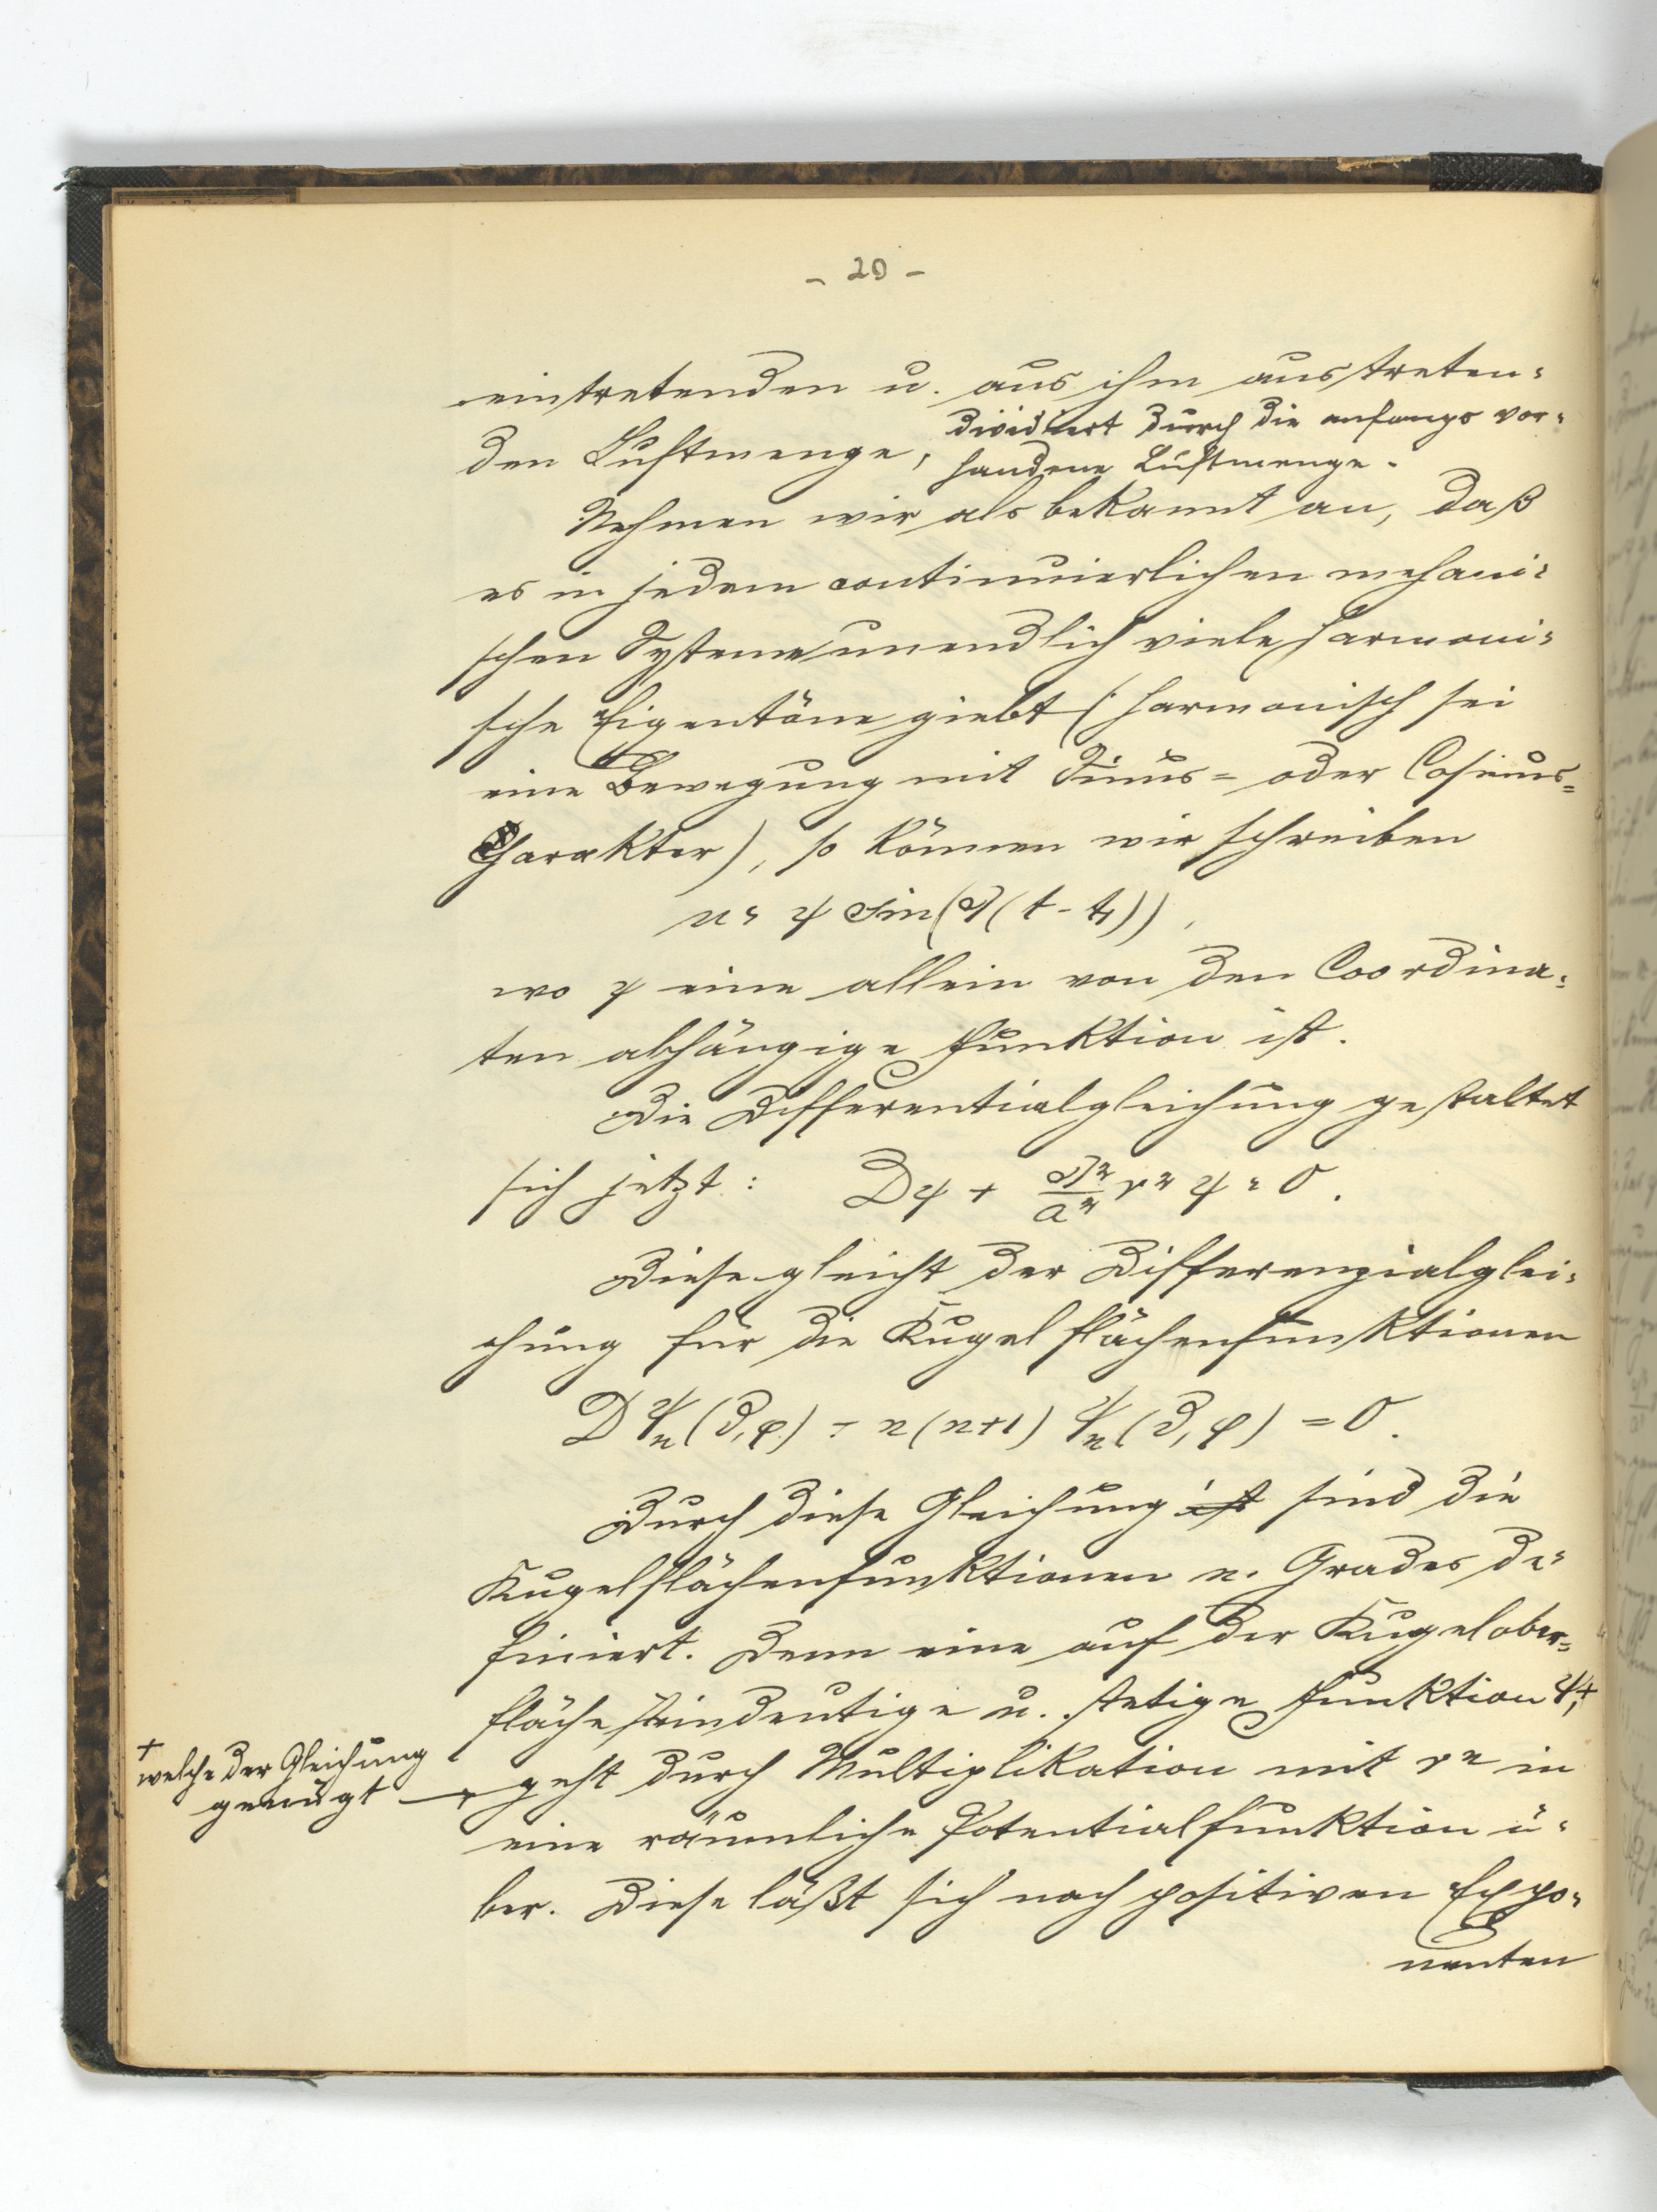 - 20 -
eintretenden u. aus ihm austreten-
den Luftmenge, dividiert durch die anfangs vor-
handene Luftmenge.
Nehmen wir als bekannt an, daß
es in jedem continuierlichen mechani-
schen Systeme unendlich viele harmoni-
sche Eigentöne giebt (harmonisch sei
eine Bewegung mit Sinus- oder Cosinus-
Charakter), so können wir schreiben
u = ψ sin(ϑ(t - t₁)),
wo ψ eine allein von den Coordina-
ten abhängige Funktion ist.
Die Differentialgleichung gestaltet
sich jetzt: Dψ + ϑ²/a² r² ψ = 0.
Diese gleicht der Differenzialglei-
chung für die Kugelflächenfunktionen
D ψₙ(ϑ, φ) + n(n+1) ψₙ(ϑ, φ) = 0.
Durch diese Gleichung ist sind die
Kugelflächenfunktionen n. Grades de-
finiert. Denn eine auf der Kugelober-
fläche eindeutige u. stetige Funktion ψ, +
+
welche der Gleichung
genügt
geht durch Multiplikation mit rⁿ in
eine räumliche Potentialfunktion ü-
ber. Diese läßt sich nach positiven Expo-
nenten